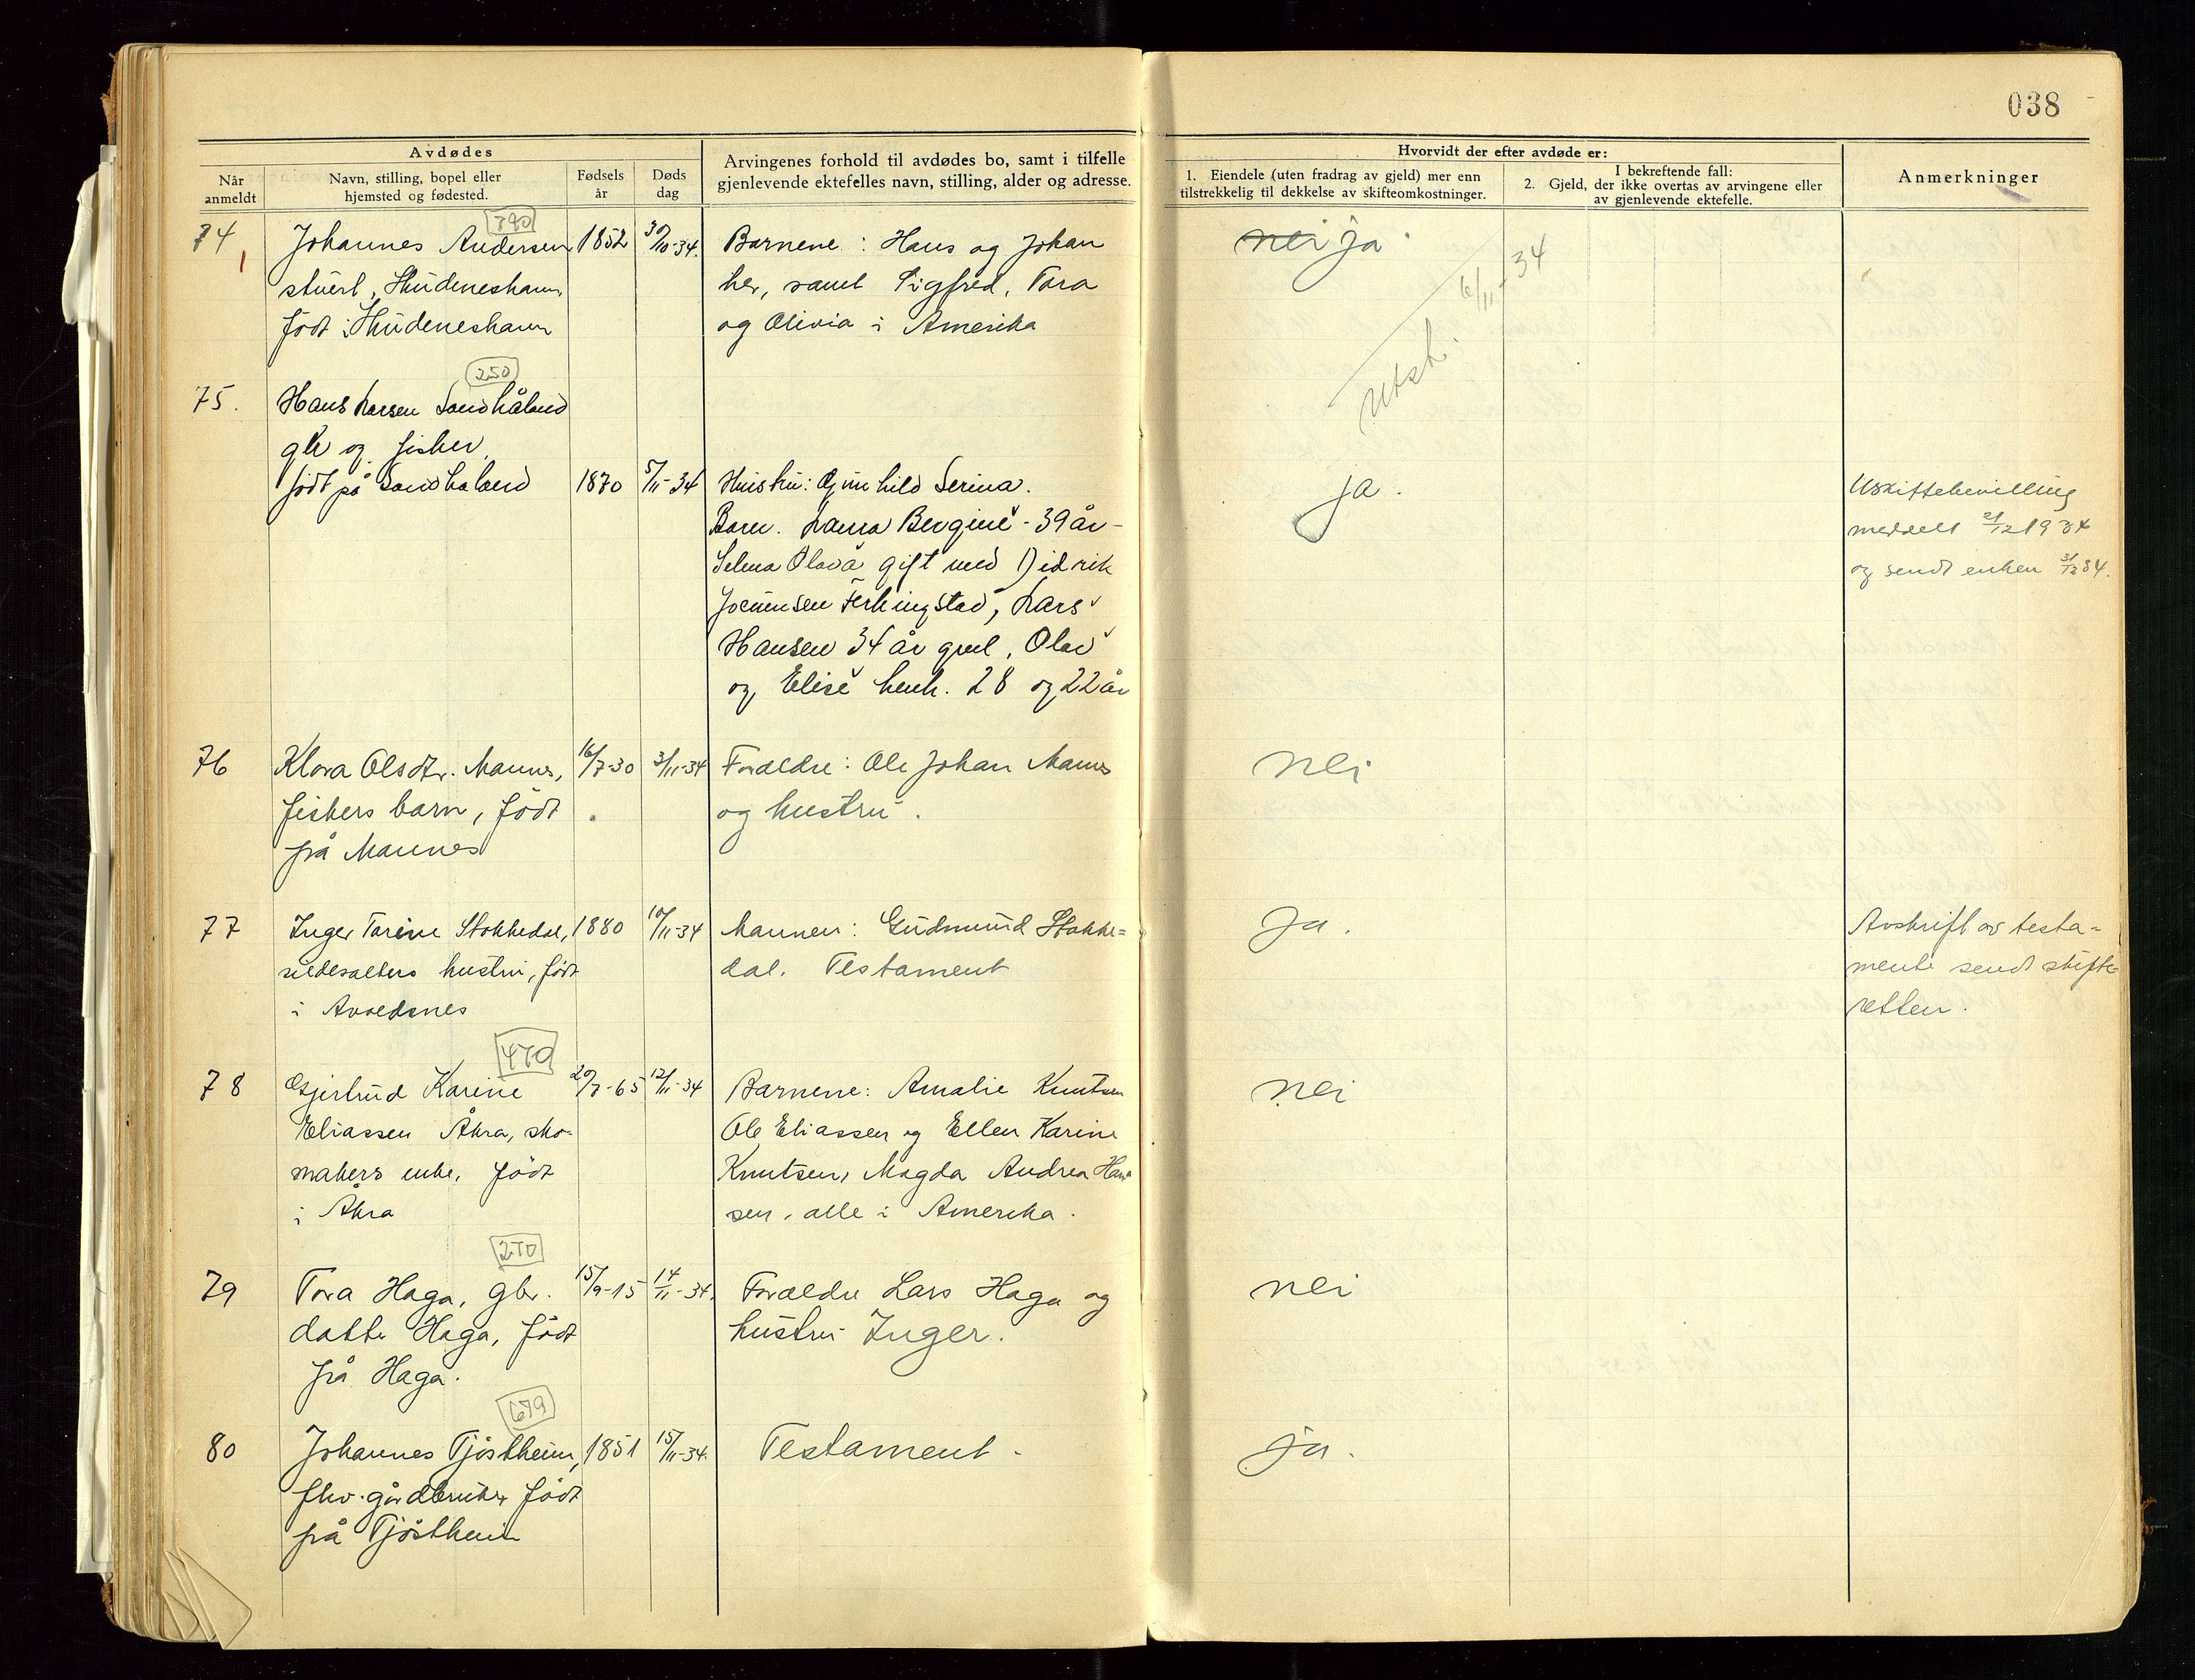 038
Avdødes
Når anmeldt
Navn, stilling, bopel eller hjemsted og fødested.
Fødsels år
Døds dag
Arvingenes forhold til avdødes bo, samt i tilfelle gjenlevende ektefelles navn, stilling, alder og adresse.
Hvorvidt der efter avdøde er:
1. Eiendele (uten fradrag av gjeld) mer enn tilstrekkelig til dekkelse av skifteomkostninger.
I bekreftende fall:
2. Gjeld, der ikke overtas av arvingene eller av gjenlevende ektefelle.
Anmerkninger
74
Johannes Andersen 1852 30/10-34.
Skudeneshavn,
født i Skudeneshavn
Barnene: Hans og Johan
her, samt Sigfred, Tora
og Olivia i Amerika
nei ja
Utsk. 6/11-34
250
75.
Hans Larsen Sandhåland
gbr og fisker,
født på Sandhaland 1870 5/11-34
Hustru: Gunhild Serina.
Barn. Laura Bergine - 39 år -
Selma Olava gift med Didrik
Ferkingstad, Lars
Hansen 34 år gml, Olav
og Elise henh. 28 og 22 år
ja.
Uskiftebevilling
meddelt 21/12 1934
og sendt enken 31/12 34.
76
Klara Olsdtr. Mannes, 16/7-30 3/11-34
fiskers barn, født
på Mannes
Foreldre: Ole Johan Mannes
og hustru.
nei
77
Inger Torine Stokkedal, 1880 10/11-34
sildesalters hustru, født
i Avaldsnes
Mannen: Gudmund Stokke=
dal. Testament
ja.
Avskrift av testa-
mente sendt skifte-
retten.
470
78
Gjertrud Karine 20/7-65 12/11-34
Eliassen Åkra, sko-
makers enke, født
i Åkra
Barnene: Amalie Knutsen
Ole Eliassen og Ellen Karine
Knutsen, Magda Andrea Han-
sen, alle i Amerika.
nei
270
79
Tora Haga, gbr. 15/9-15 14/11-34.
datte Haga, født
på Haga.
Foreldre Lars Haga og
hustru Inger.
nei
679
80
Johannes Tjøstheim, 1851 15/11-34.
fhv. gårdbruker født
på Tjøstheim
Testament -
ja.